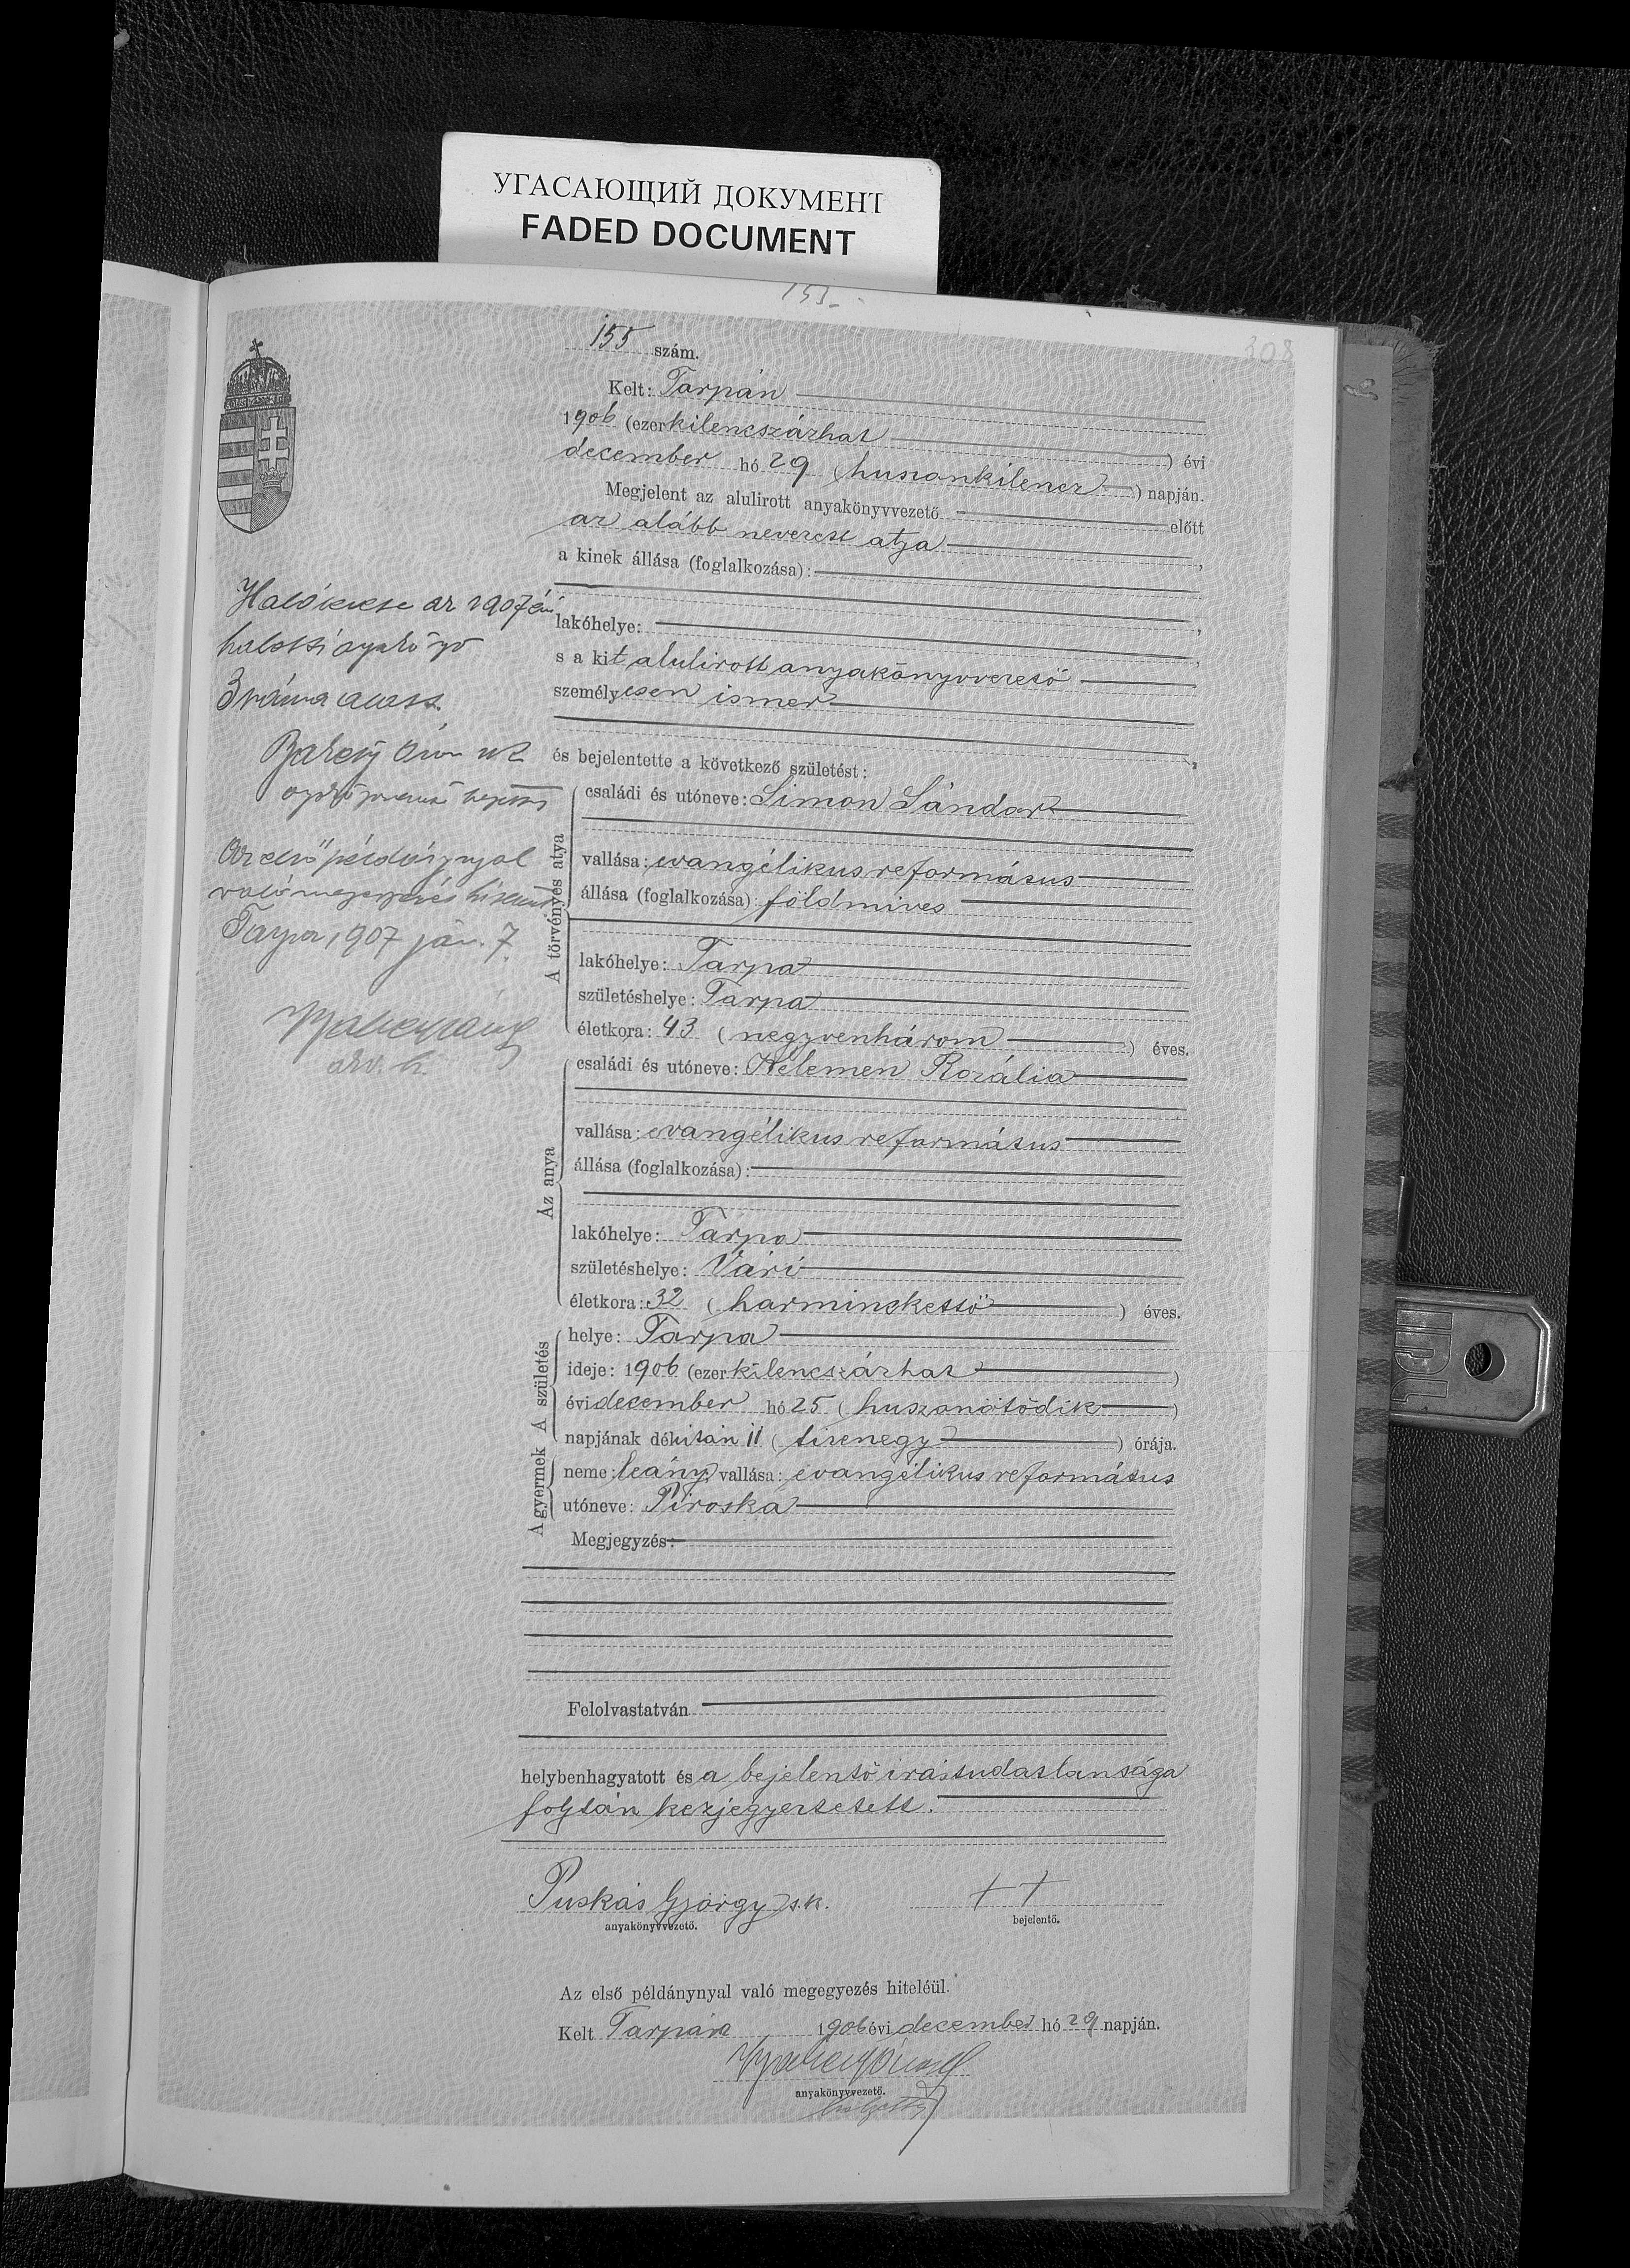 УГАСАЮЩИЙ ДОКУМЕНТ
FADED DOCUMENT
308
155 szám.
Kelt: Tarpán
1906 (ezer kilencszázhat ) évi
december hó 29 (huszonkilencz ) napján.
Megjelent az alulirott anyakönyvvezető előtt
az alább nevezett atya
a kinek állása (foglalkozása):
lakóhelye:
s a kit alulirott anyakönyvvezető
személyesen ismer
és bejelentette a következő születést:
A törvényes atya
családi és utóneve: Simon Sándor
vallása: evangélikus református
állása (foglalkozása): földmives
lakóhelye: Tarpa
születéshelye: Tarpa
életkora: 43 (negyvenhárom ) éves.
Az anya
családi és utóneve: Kelemen Rozália
vallása: evangélikus református
állása (foglalkozása):
lakóhelye: Tarpa
születéshelye: Vári
életkora: 32 (harminckettő ) éves.
A születés
helye: Tarpa
ideje: 1906 (ezer kilencszázhat )
évi december hó 25 (huszonötödik )
napjának délután 11 (tizenegy ) órája.
A gyermek
neme: leány, vallása: evangélikus református
utóneve: Piroska
Megjegyzés:
Felolvastatván
helybenhagyatott és a bejelentő irástudatlansága
folytán kézjegyeztetett.
Puskás György s.k. ++
anyakönyvvezető. bejelentő.
Az első példánynyal való megegyezés hiteléül.
Kelt Tarpán 1906 évi december hó 29 napján.
anyakönyvvezető.
az 1907 évi
halotti
3 alatt.
Az első példánynyal
való megegyezés
Tarpa, 1907 jan. 7.